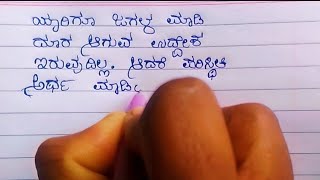 ಯಾರಿಗೂ ಜಗಳ ಮಾಡಿ
ದೂರ ಆಗುವ ಉದ್ದೇಶ
ಇರುವುದಿಲ್ಲ. ಆದರೆ ಪರಿಸ್ಥಿತಿ
ಅರ್ಥ ಮಾಡಿ